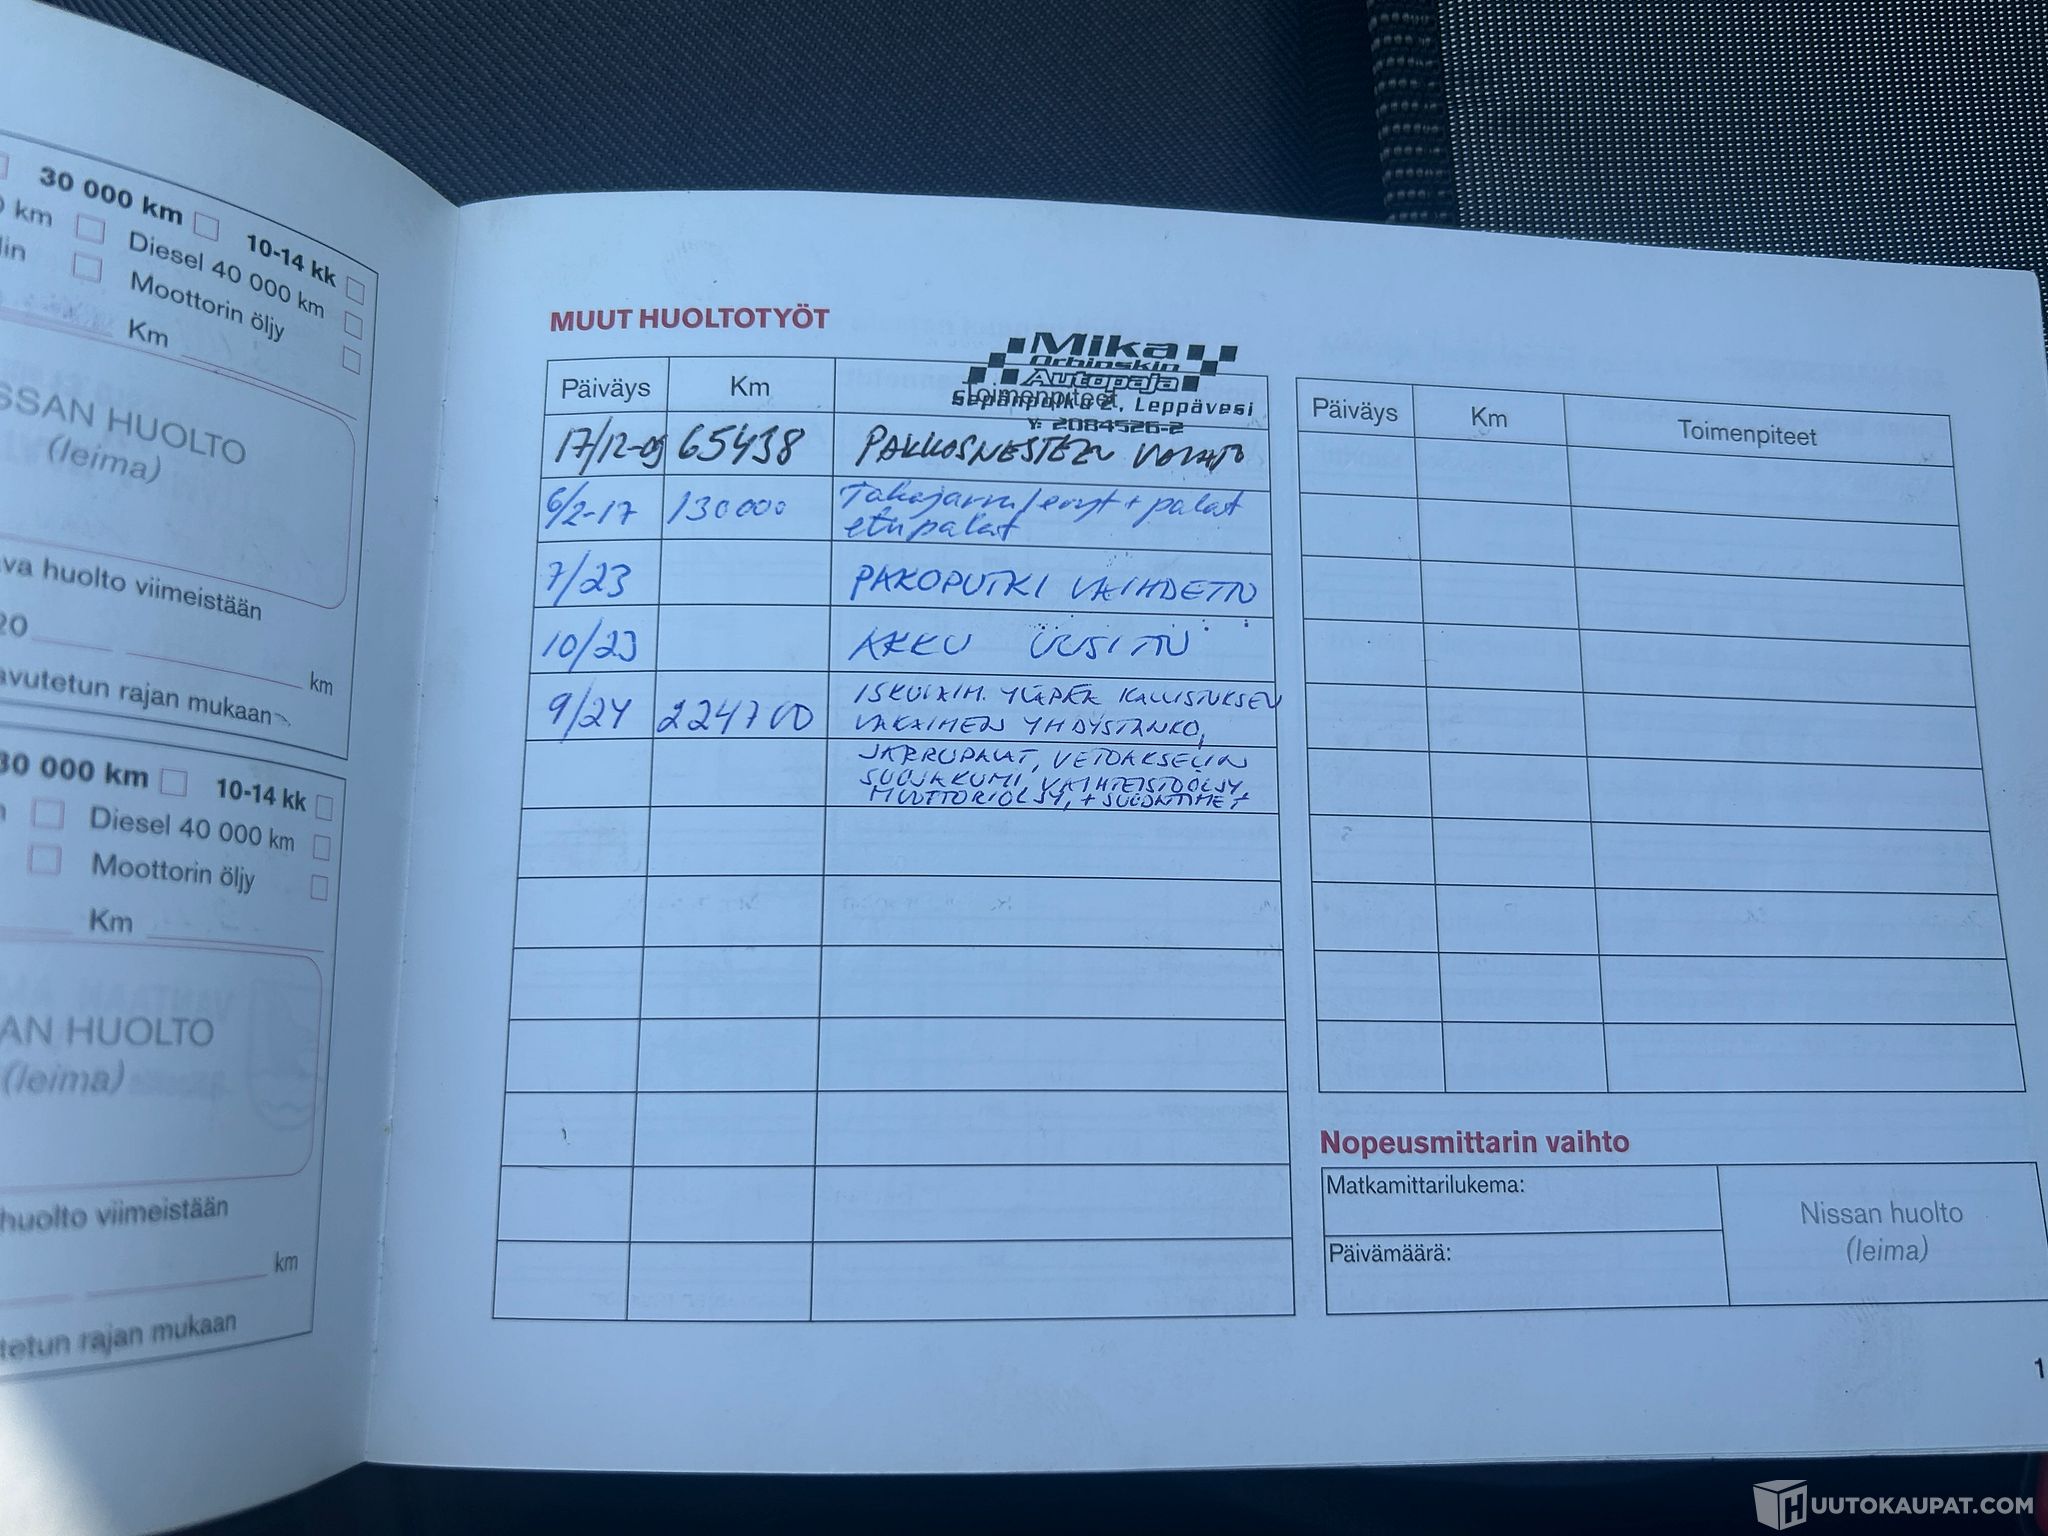 30 000 km
10-14 kk
km
Diesel 40 000 km
Moottorin öljy
Km
SSAN HUOLTO
(leima)
va huolto viimeistään
20
km
avutetun rajan mukaan
30 000 km
10-14 kk
Diesel 40 000 km
Moottorin öljy
Km
AN HUOLTO
(leima)
huolto viimeistään
km
tetun rajan mukaan
MUUT HUOLTOTYÖT
Mika
Orbinskin
Autopaja
Sepänpolku 2, Leppävesi
Y: 2084526-2
Päiväys Km Toimenpiteet
17/12-09 65438 PAKKASNESTEEN VAIHTO
6/2-17 130000 Takajarru levyt + palat
etupalat
7/23 PAKOPUTKI VAIHDETTU
10/23 AKKU UUSITTU
9/24 224700 ISKUNVAIM. YLÄPÄÄ KALLISTUKSEN
VAKAIMEN YHDYSTANKO,
JARRUPALAT, VETOAKSELIN
SUOJAKUMI, VAIHTEISTOÖLJY,
MOOTTORIÖLJY, + SUODATTIMET
Päiväys Km Toimenpiteet
Nopeusmittarin vaihto
Matkamittarilukema:
Päivämäärä:
Nissan huolto
(leima)
1
HUUTOKAUPAT.COM